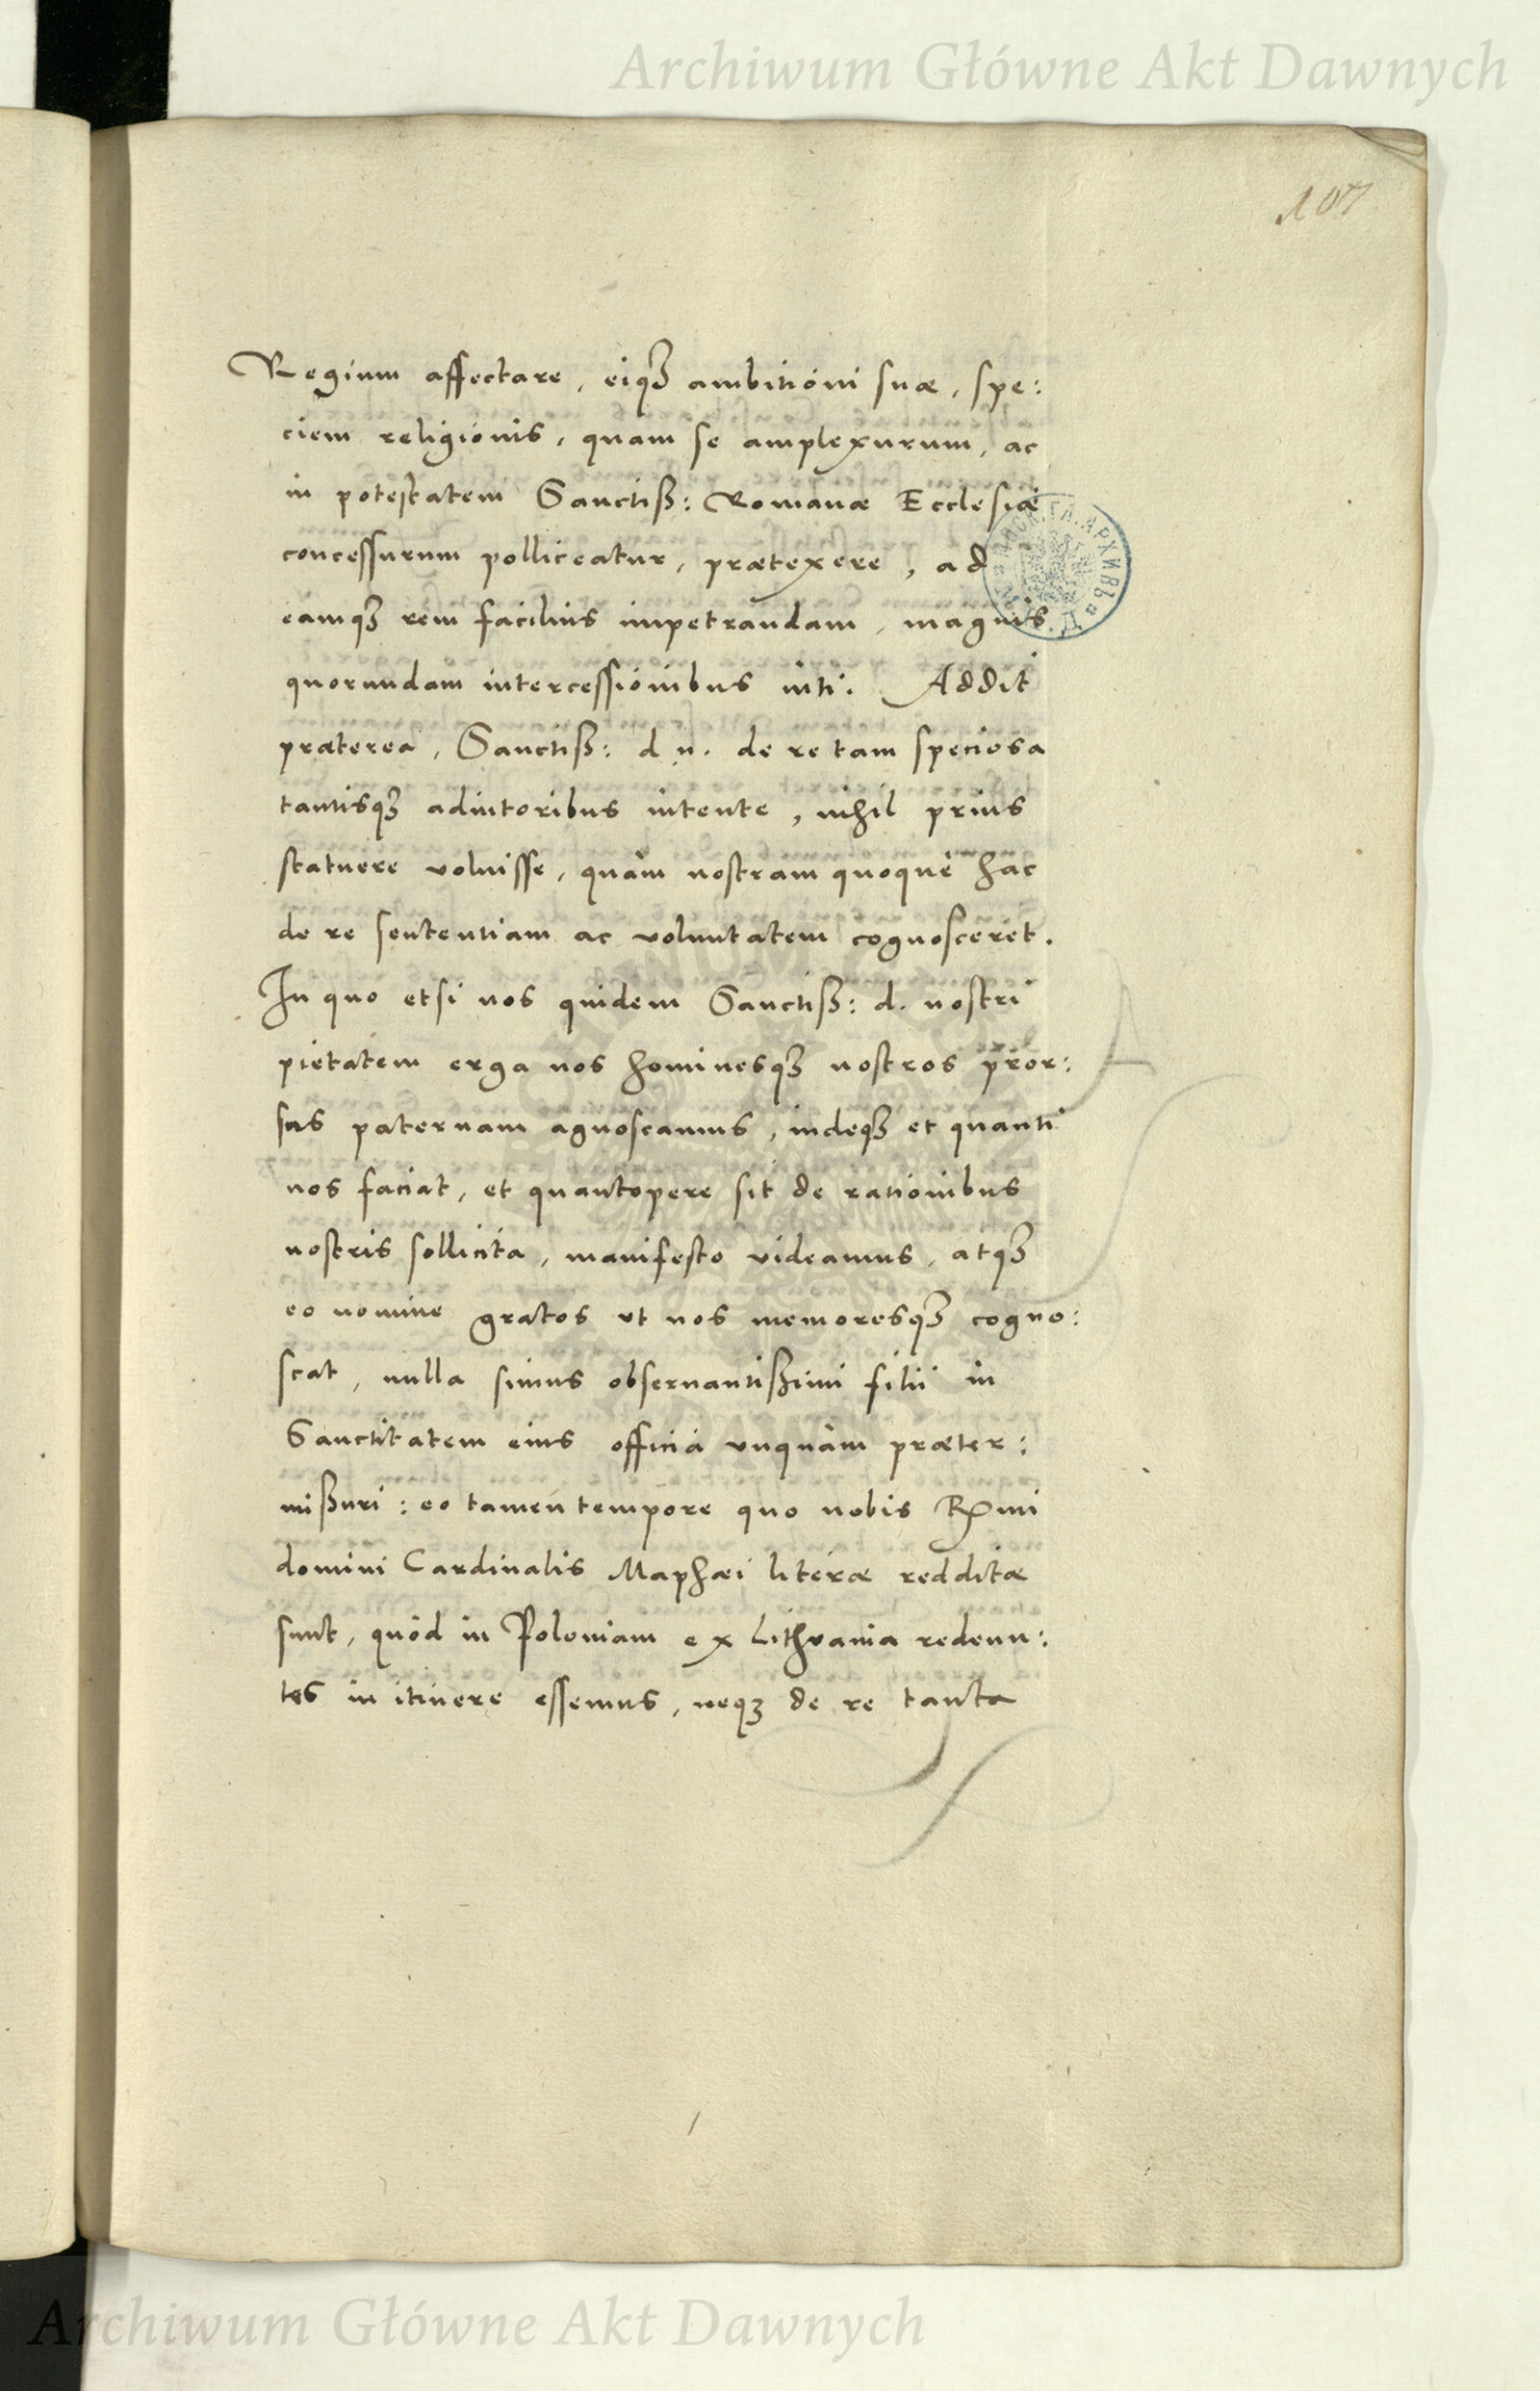 Archiwum Główne Akt Dawnych
107
Regium affectare, eiqꝫ ambitioni suæ, spe:
ciem religionis, quam se amplexurum, ac
in potestatem Sanctiß: Romanæ Ecclesiæ
concessurum polliceatur, prætexere, ad
eamqꝫ rem facilius impetrandam, magnis
quorundam intercessionibus niti. Addit
præterea, Sanctiß: d. n. de re tam speciosa
tantisqꝫ adiutoribus intente, nihil prius
statuere voluisse, quàm nostram quoque hac
de re sententiam ac voluntatem cognosceret.
In quo etsi nos quidem Sanctiß: d. nostri
pietatem erga nos hominesqꝫ nostros pror:
sus paternam agnoscamus, indeqꝫ et quanti
nos faciat, et quantopere sit de rationibus
nostris sollicita, manifesto videamus, atqꝫ
eo nomine gratos ut nos memoresqꝫ cogno:
scat, nulla simus obseruantißimi filii in
Sanctitatem eius officia vnquàm præter:
mißuri: eo tamen tempore quo nobis Rmi
domini Cardinalis Maphæi literæ redditæ
sunt, quòd in Poloniam ex Lithvania redeun:
tes in itinere essemus, neqꝫ de re tanta
Archiwum Główne Akt Dawnych